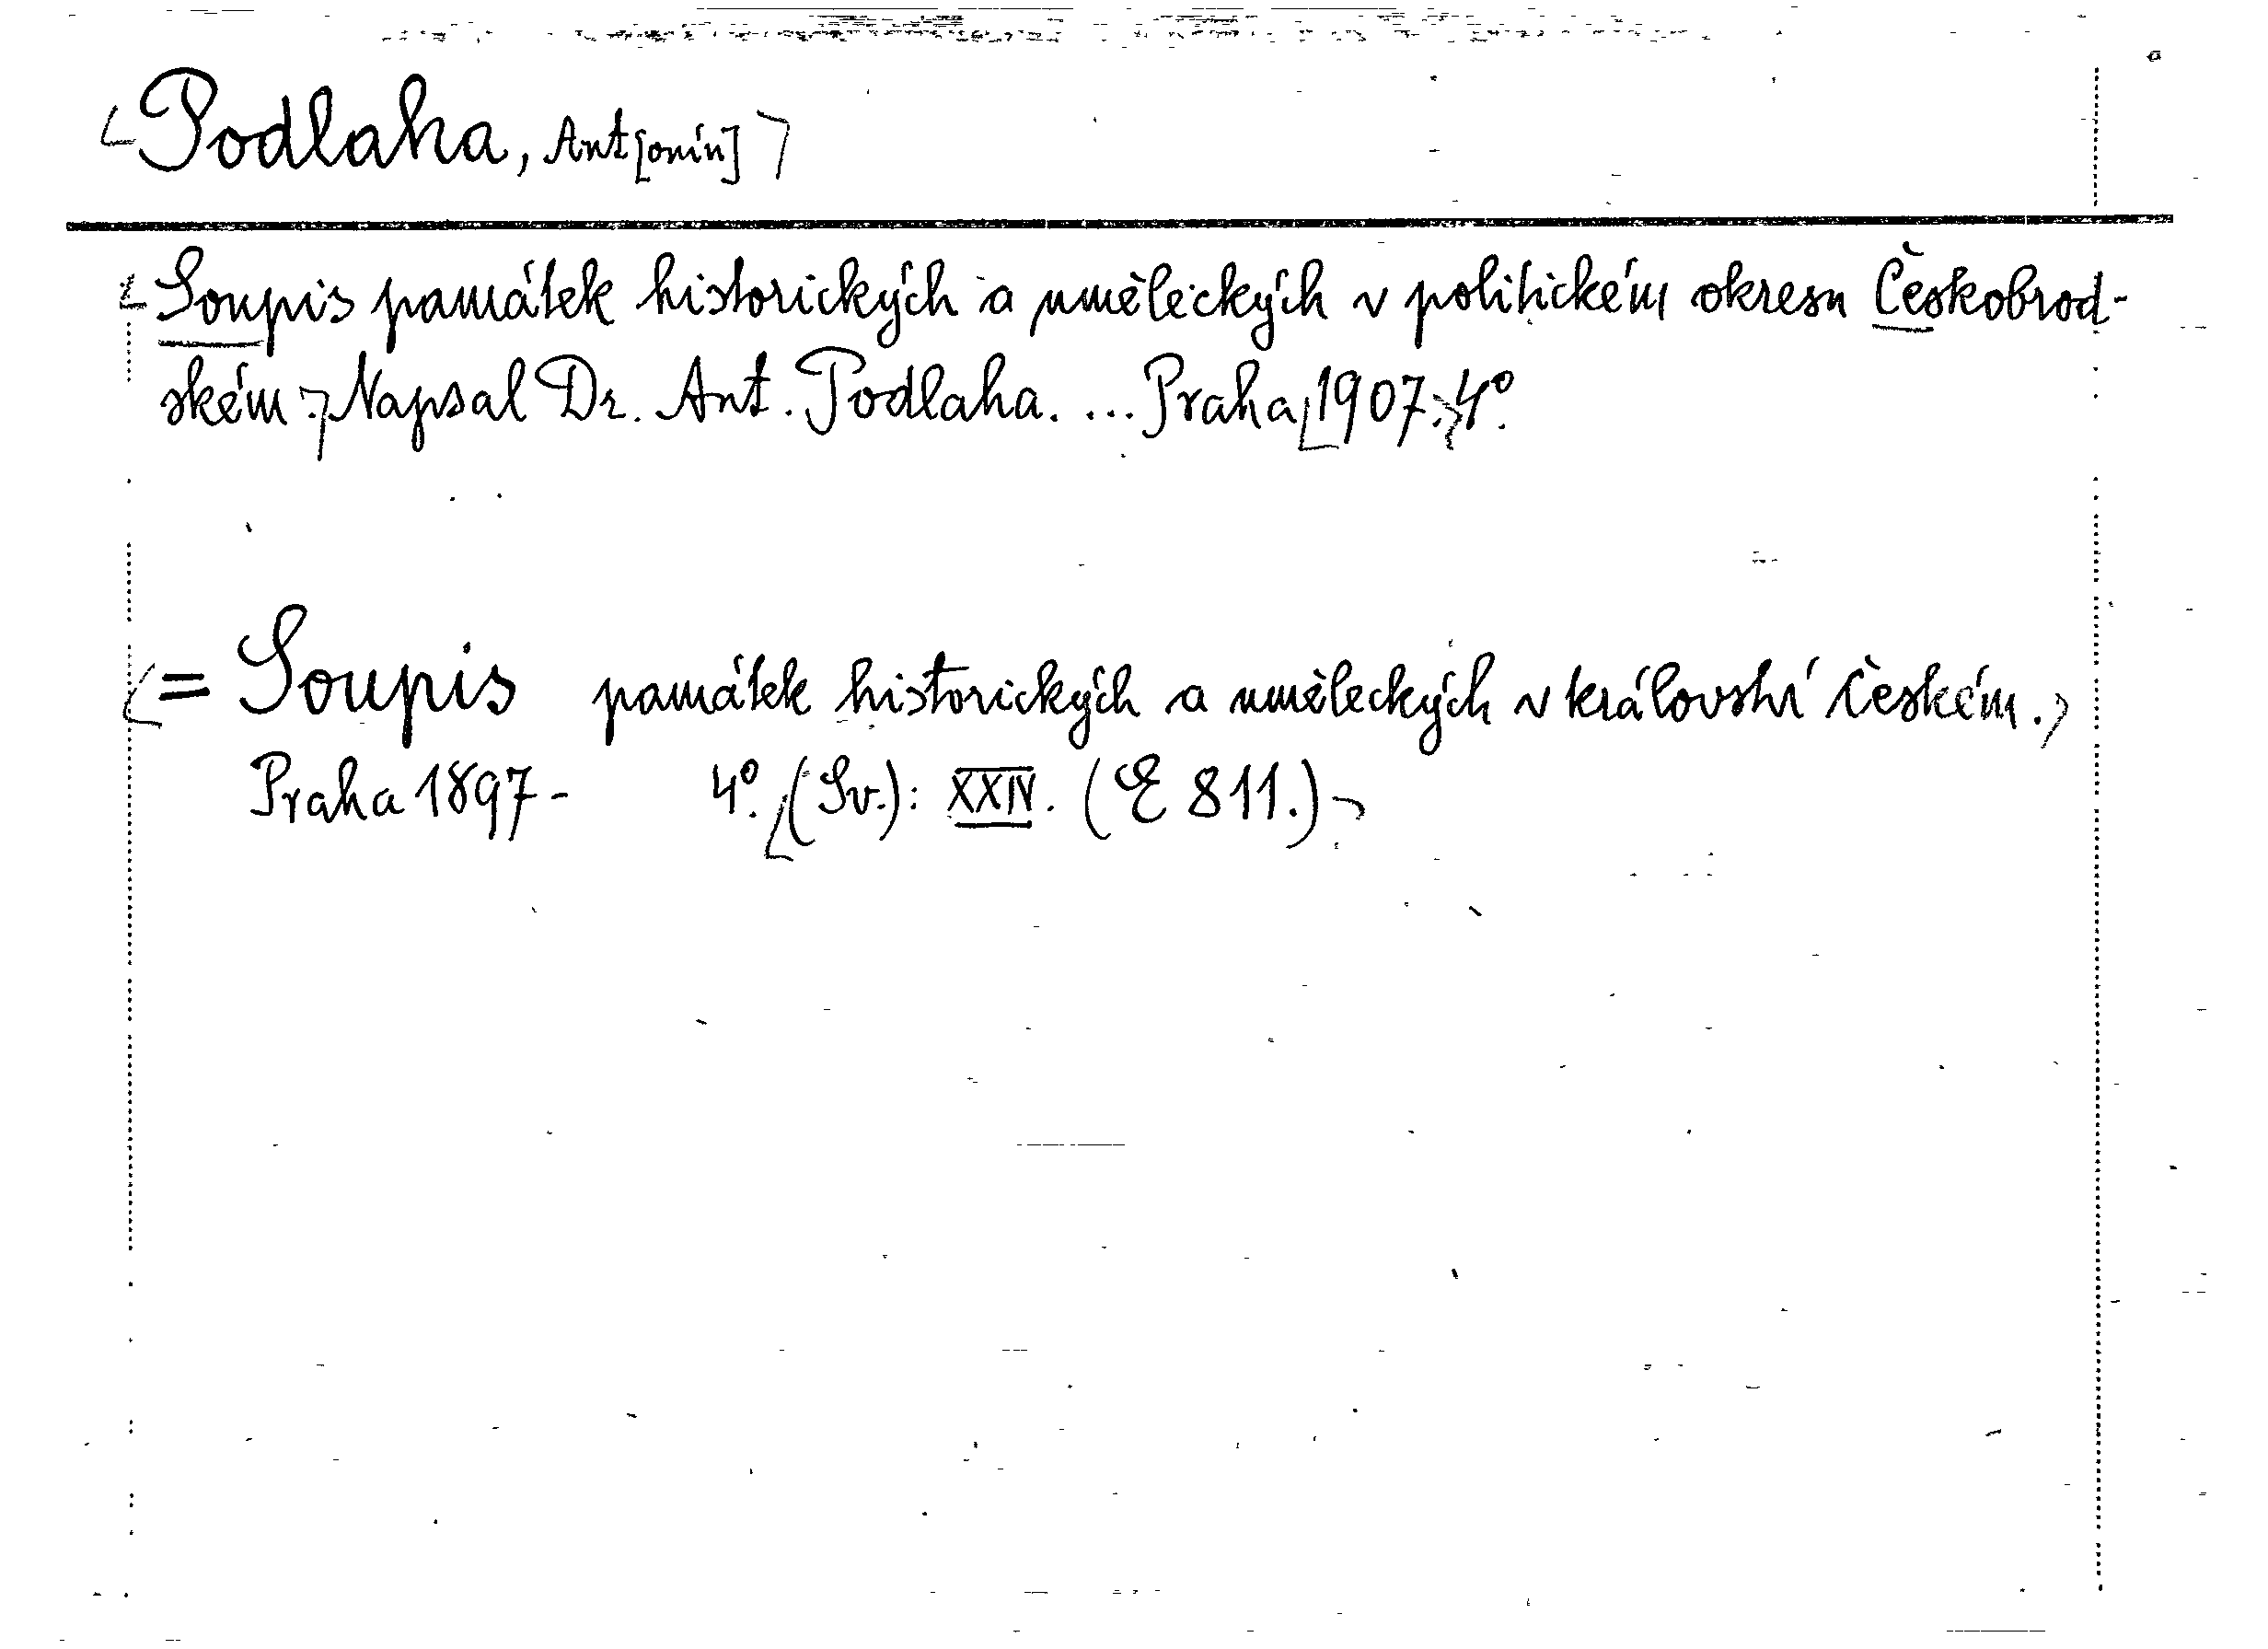 Podlaha, Ant[onín]
Soupis památek historických a uměleckých v politickém okresu Českobrod-
ském. Napsal Dr. Ant. Podlaha. ... Praha, 1907. 4°.
= Soupis památek historických a uměleckých v království českém.
Praha 1897- 4°. (Sv.): XXIV. (E 811.)